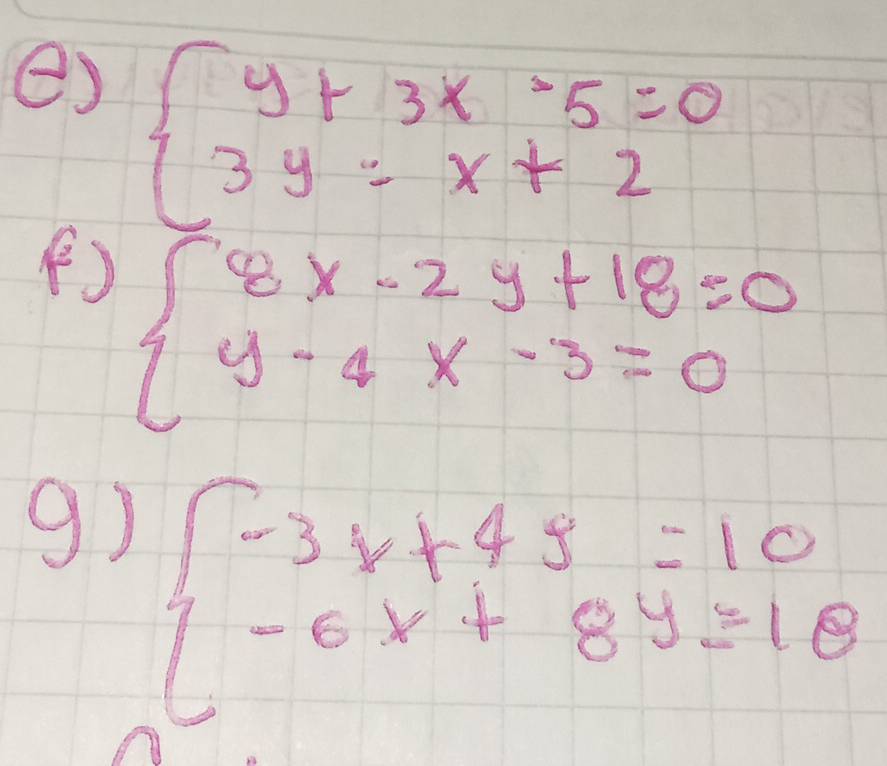 e) { y + 3x - 5 = 0
3y = x + 2
f) { 8x - 2y + 18 = 0
y - 4x - 3 = 0
g) { -3x + 4y = 10
-6x + 8y = 18